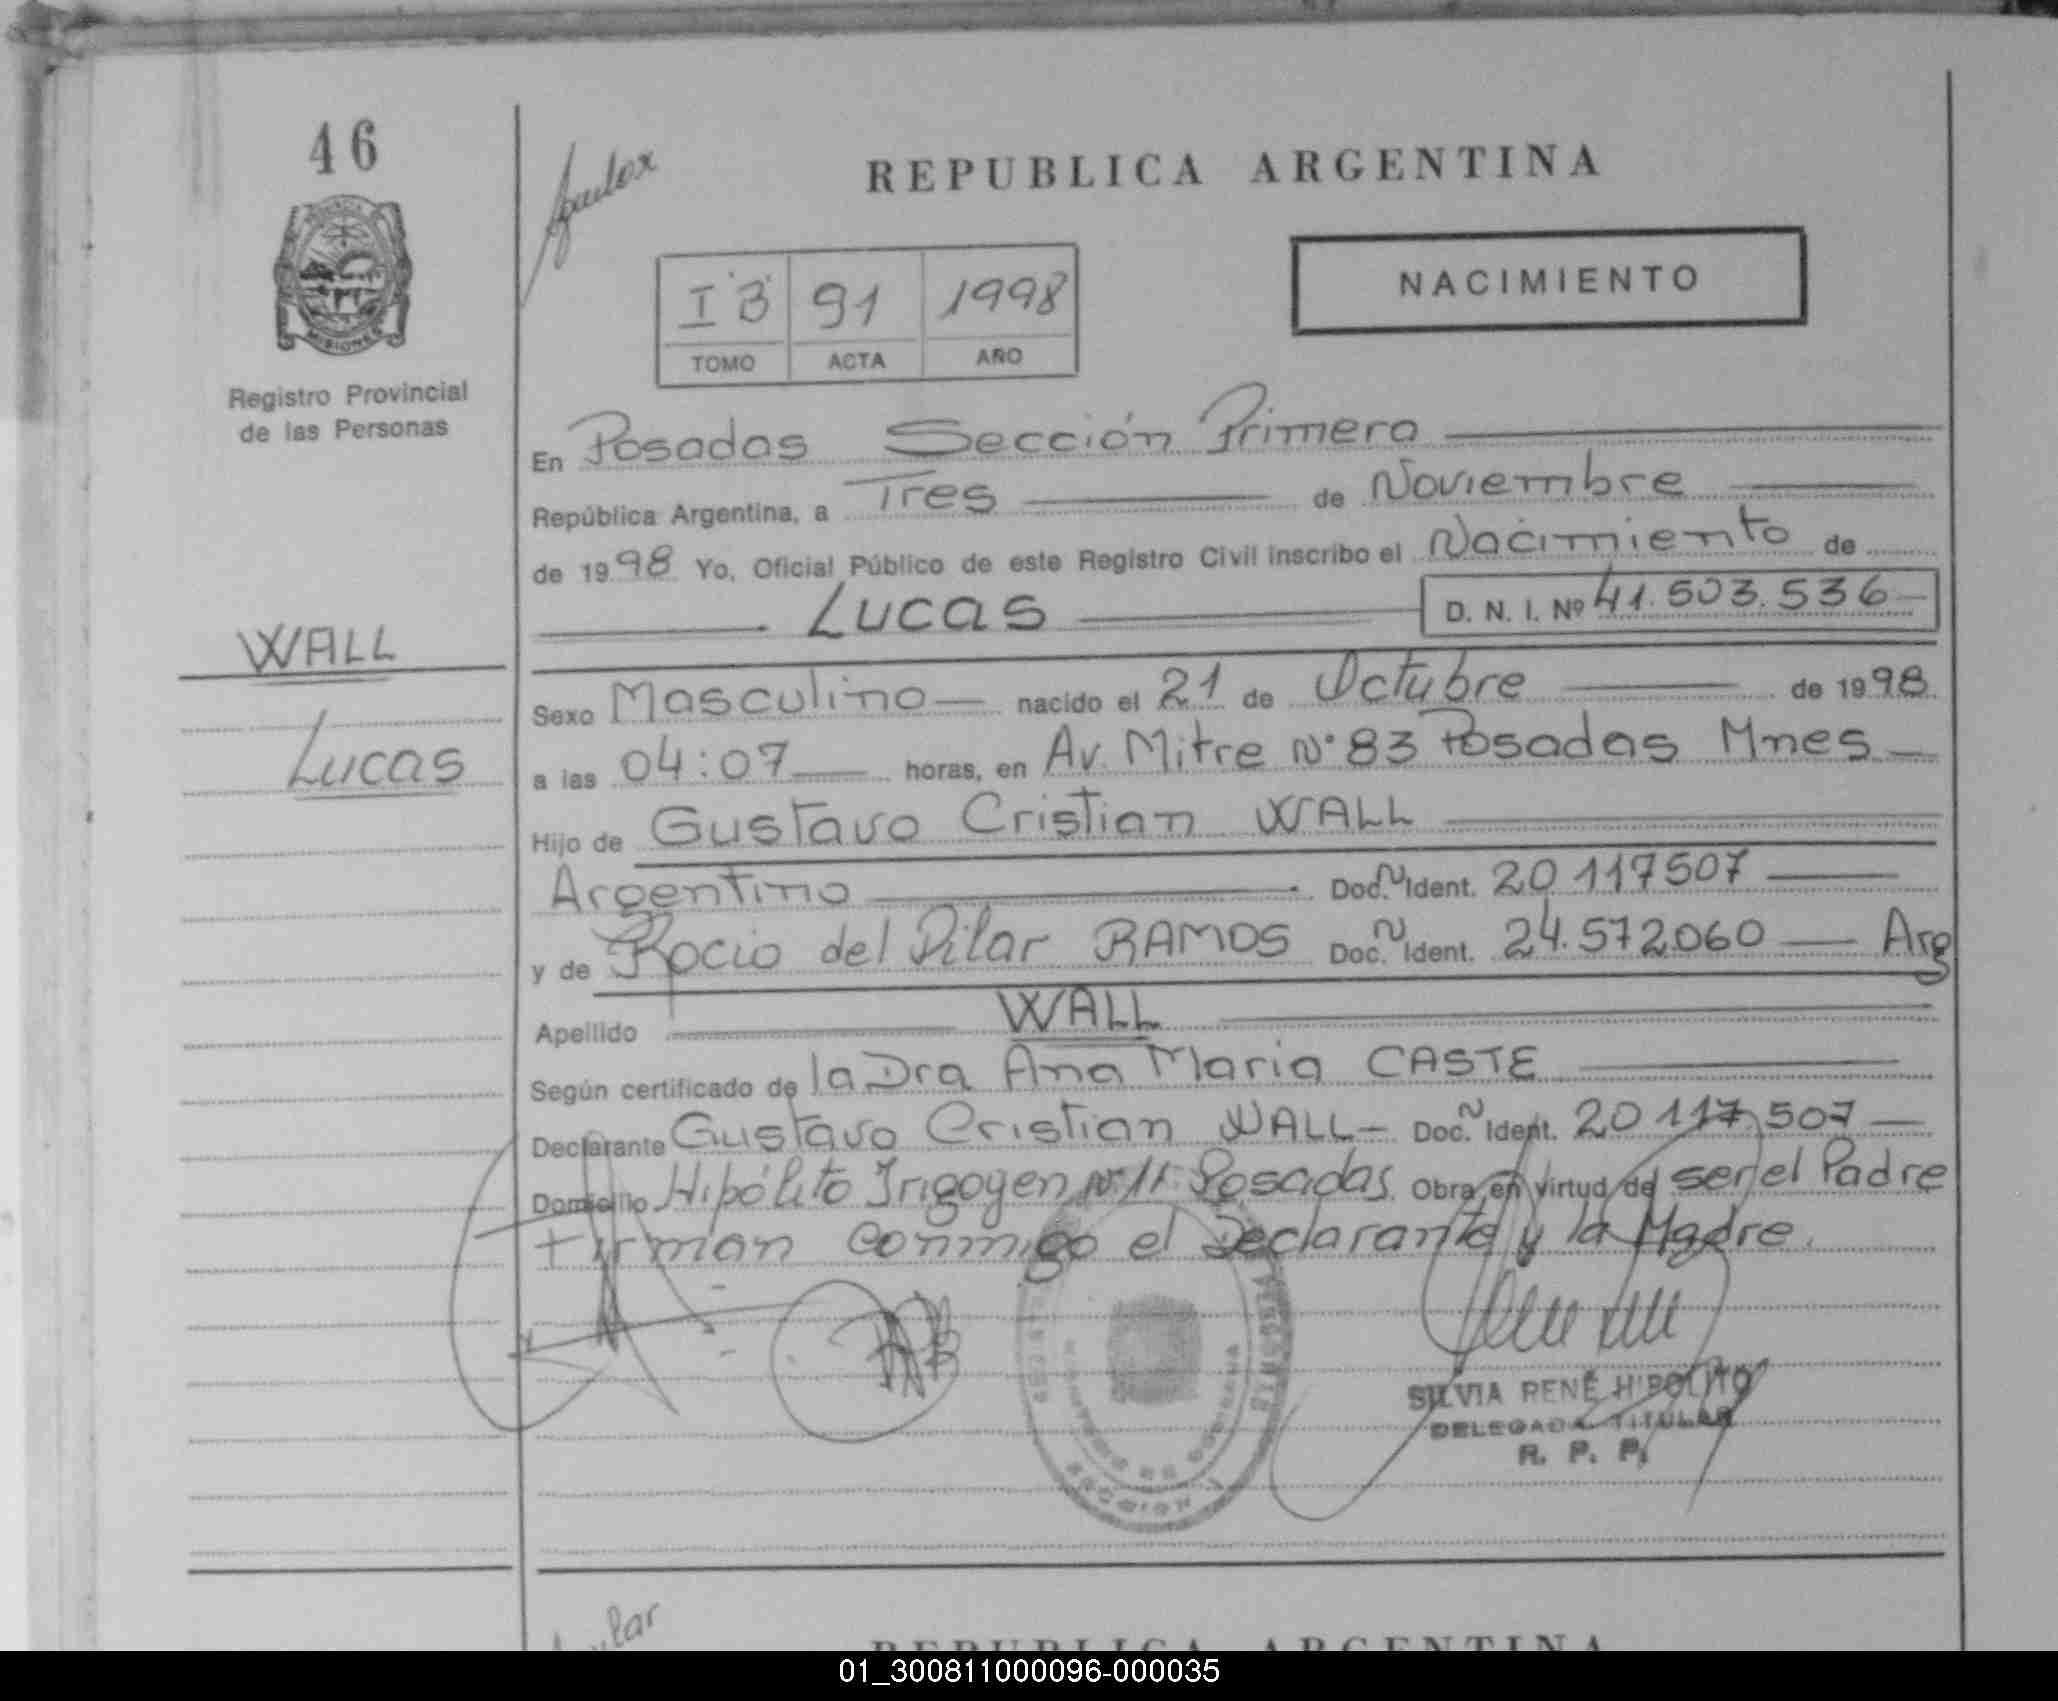 46
REPUBLICA ARGENTINA
NACIMIENTO
I "B" 91 1998
TOMO ACTA AÑO
MISIONES
Registro Provincial
de las Personas
En Posadas Sección Primera
República Argentina, a Tres de Noviembre
de 1998 Yo, Oficial Público de este Registro Civil inscribo el Nacimiento de
Lucas D. N. I. Nº 41.503.536
WALL
Lucas
Sexo Masculino nacido el 21 de Octubre de 1998
a las 04:07 horas, en Av. Mitre Nº 83 Posadas Mnes
Hijo de Gustavo Cristian WALL
Argentino Doc. N Ident. 20.117507
y de Rocio del Pilar RAMOS Doc. N Ident. 24.572.060 Arg
Apellido WALL
Según certificado de la Dra Ana Maria CASTE
Declarante Gustavo Cristian WALL Doc. N Ident. 20 117.507
Domicilio Hipólito Irigoyen Nº 11 Posadas Obra en virtud de ser el Padre
Firman conmigo el Declarante y la Madre.
SILVIA RENÉ HIPOLITO
DELEGADA TITULAR
R. P. P.
REPUBLICA ARGENTINA
01_300811000096-000035